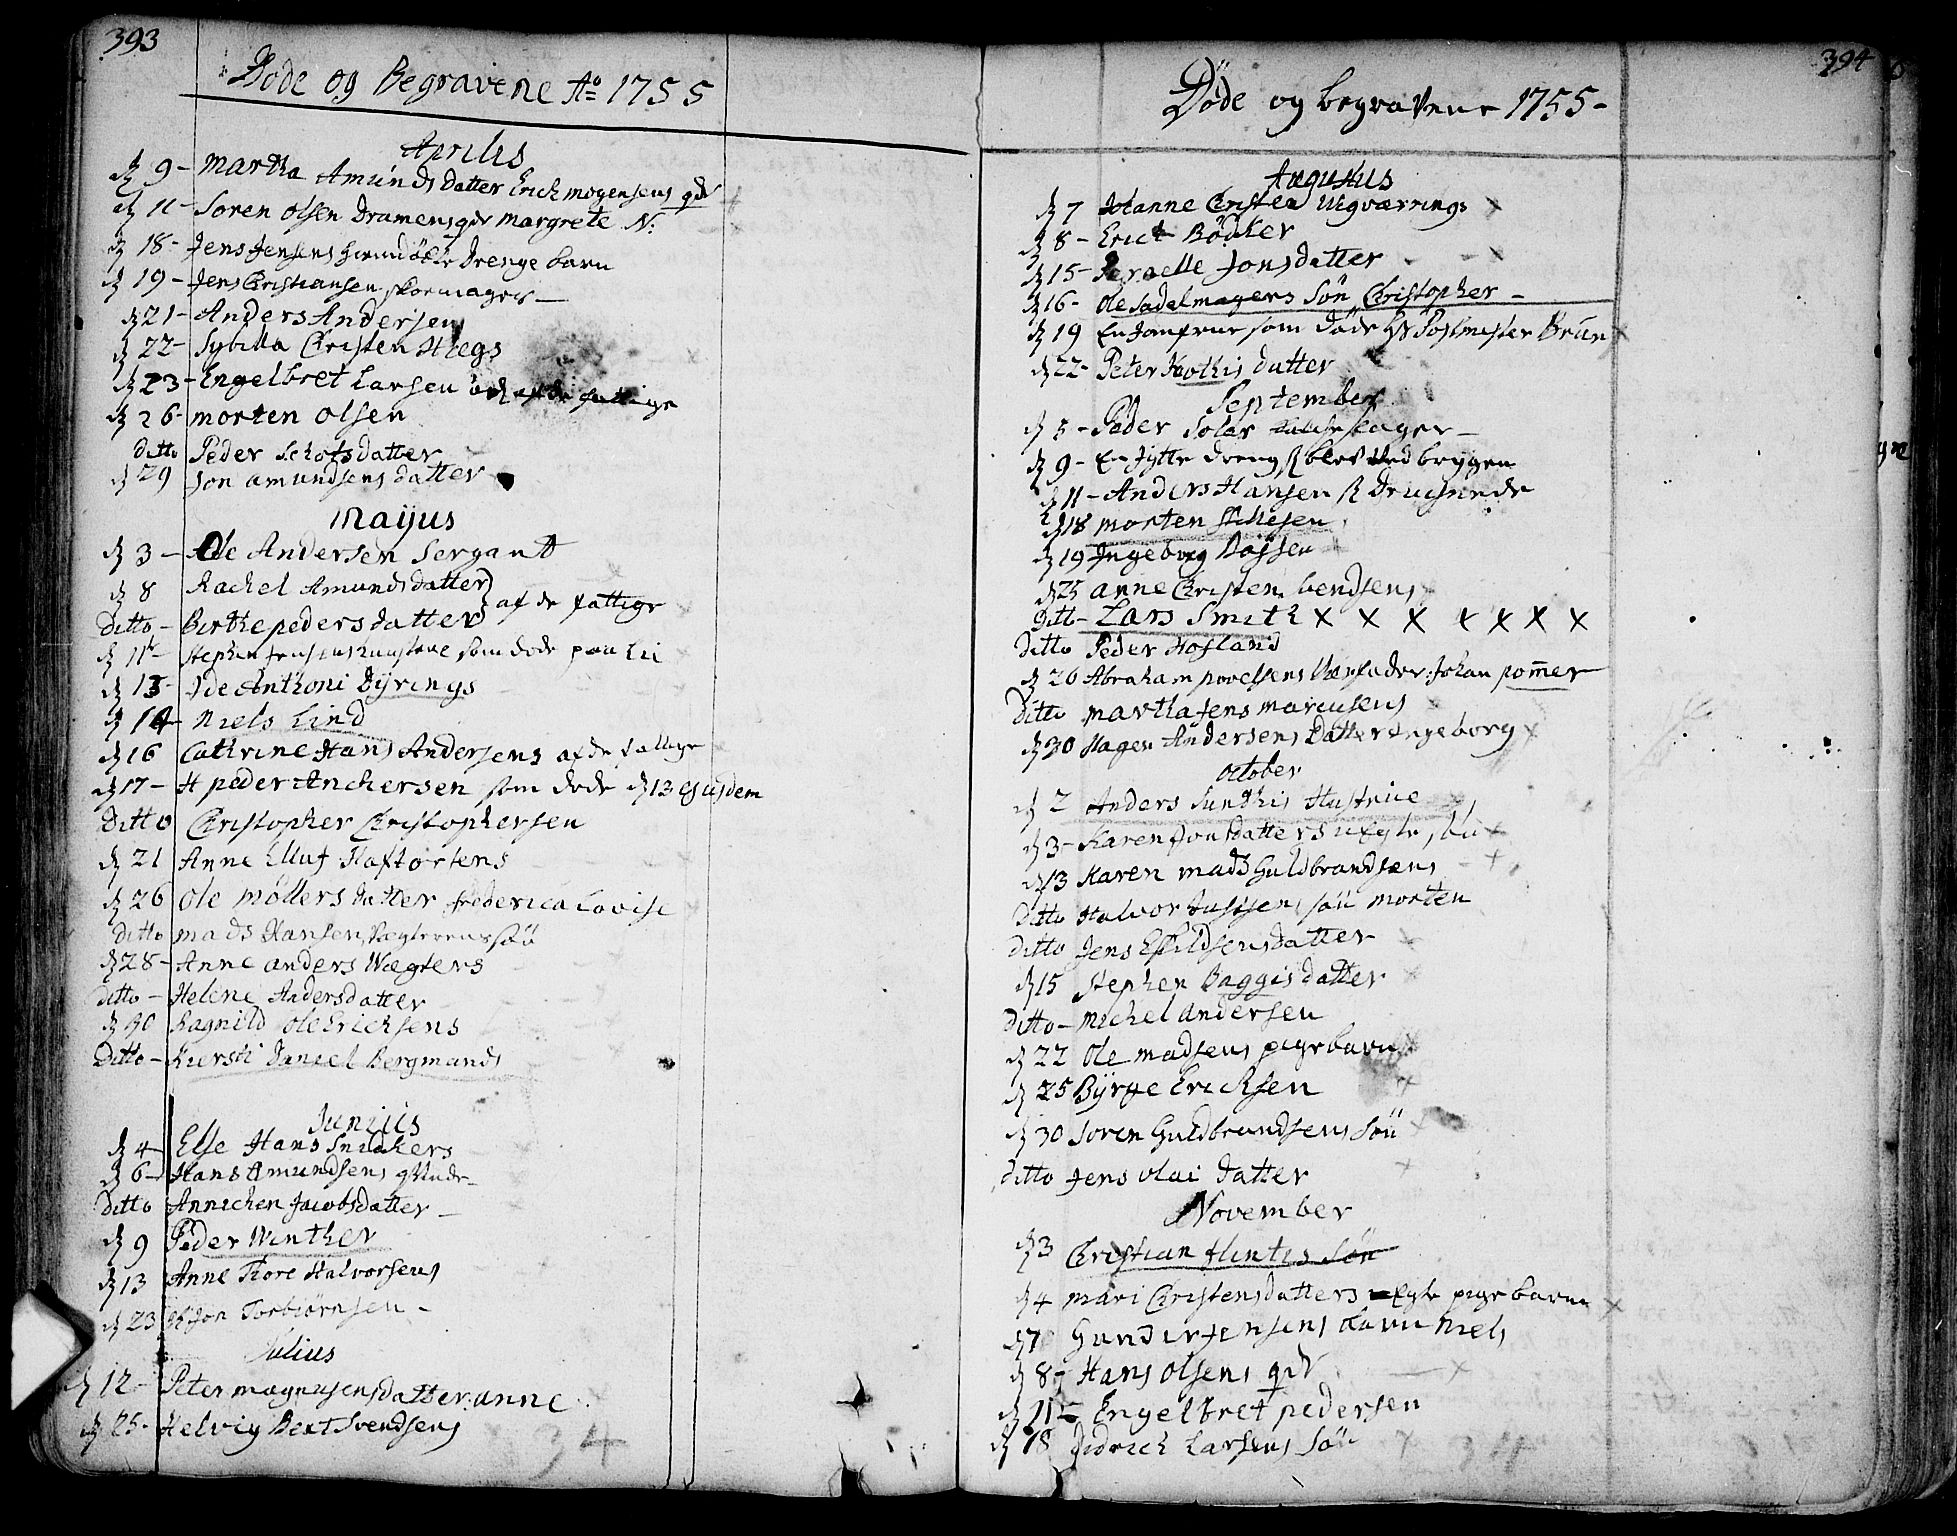 393
Dode og Begravene Ao 1755
Aprilis
d 9 - Martha Amunds datter Erich mogensens qv
d 11 - Soren Olsen Dramens qv margrete N:
d 18 - Jens Jensens döbte Drenge barn
d 19 - Jens Christiansen skoemager -
d 21 - Anders Andersen
d 22 - Sybilla Christen Hiegs
d 23 - Engelbret Larsen af de fattige
d 26 - morten olsen
ditto Peder Schots datter
d 29 Jon amundsens datter
Maijus
d 3 - Ole Andersen Sergant
d 8 Rachel Amunds datter
Ditto - Birthe peders datter af de fattige
d 11 - Stephen Jensens som dode paa Lii
d 13 - Ide Anthoni Dijrings
d 14 - Niels Lind
d 16 Cathrine Hans Andersens af de fattige
d 17 - H peder Anchersen som dode d 13 ejusdem
Ditto Christopher Christophersen
d 21 Anne Elluf Haftortens
d 26 Ole Möllers datter frederica Lovise
ditto mads Hansen Vægterens söö
d 28 - Anne anders Wægters
ditto - Helene Andersdatter
d 30 Ragnild Ole Erichsens
Ditto - Kiersti Daniel Bergmands
Junius
d 4 - Else Hans Snidkers
d 6 - Hans Amundsens qvinde -
Ditto Annichen Jacobsdatter -
d 9 Peder Winther
d 13 Anne Tore Halvorsens
d 23 Jon Torbiörnsen -
Julius
d 12 - Peter magnusens datter: anne
d 25 - Helvig Bent Svendsens
34
394
Döde og begravene 1755 -
Augustus
d 7 Hanne Christen Uigværrings
d 8 - Erich Bödker
d 15 - Peraelle Jonsdatter
d 16 - Ole Sadelmagers Sön Christopher -
d 19 En Jomfrue som döde Postmester Brun
d 22 - Peter Kothis datter
September
d 3 - Peder Solar -
d 9 - En Jytte dreng blev ved brygen
d 11 - Anders Hansen
d 18 morten
d 19 Ingeborg Bojsen
d 25 anne Christen bendsens
Ditto - Lars Smith X X X X X X X
ditto Peder Hofland
d 26 Abraham povelsens Værfader Johan pommer
Ditto martha Jens mariusens
d 30 Hagen Andersens Datter Ingeborg
october
d 2 Anders Sunthis Hustrue
d 3 - Karen Jonsdatters uegte
d 13 Karen mads Guldbrandsens
Ditto Halvor söü morten
ditto Jens Eskildsens datter
d 15 Stephen Baggis datter
Ditto - Michel andersen
d 22 Ole madsens pige barn
d 25 Byrge Ericksen
d 30 Soren Guldbrandsens söü
ditto Jens olai datter
November
d 3 Christian Hintzis Sön
d 4 mari Christensdatters uegte pige barn
d 7 Gunder Jensens Niels
d 8 - Hans Olsens qv
d 11 - Engelbret pedersen
d 18 Didrich Larsens söü
34